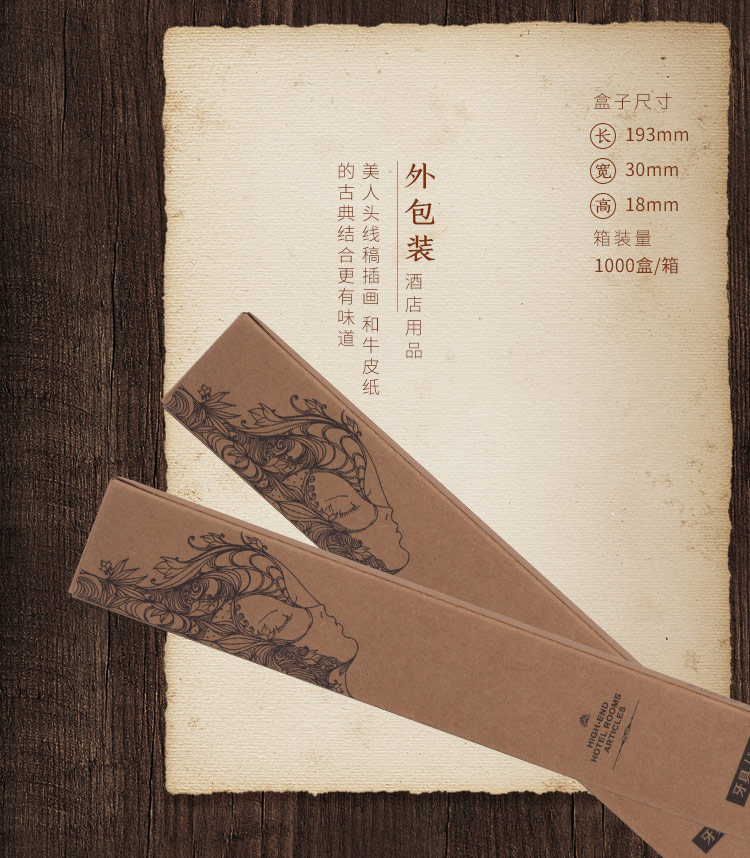 盒子尺寸
长 193mm
宽 30mm
高 18mm
箱装量
1000盒/箱
外包装 酒店用品
美人头线稿插画 和牛皮纸
的古典结合更有味道
HIGH-END
HOTEL ROOMS
ARTICLES
牙具
牙